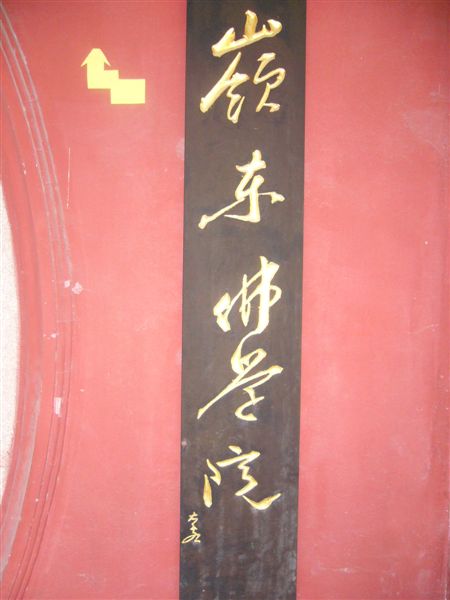 嶺东佛学院